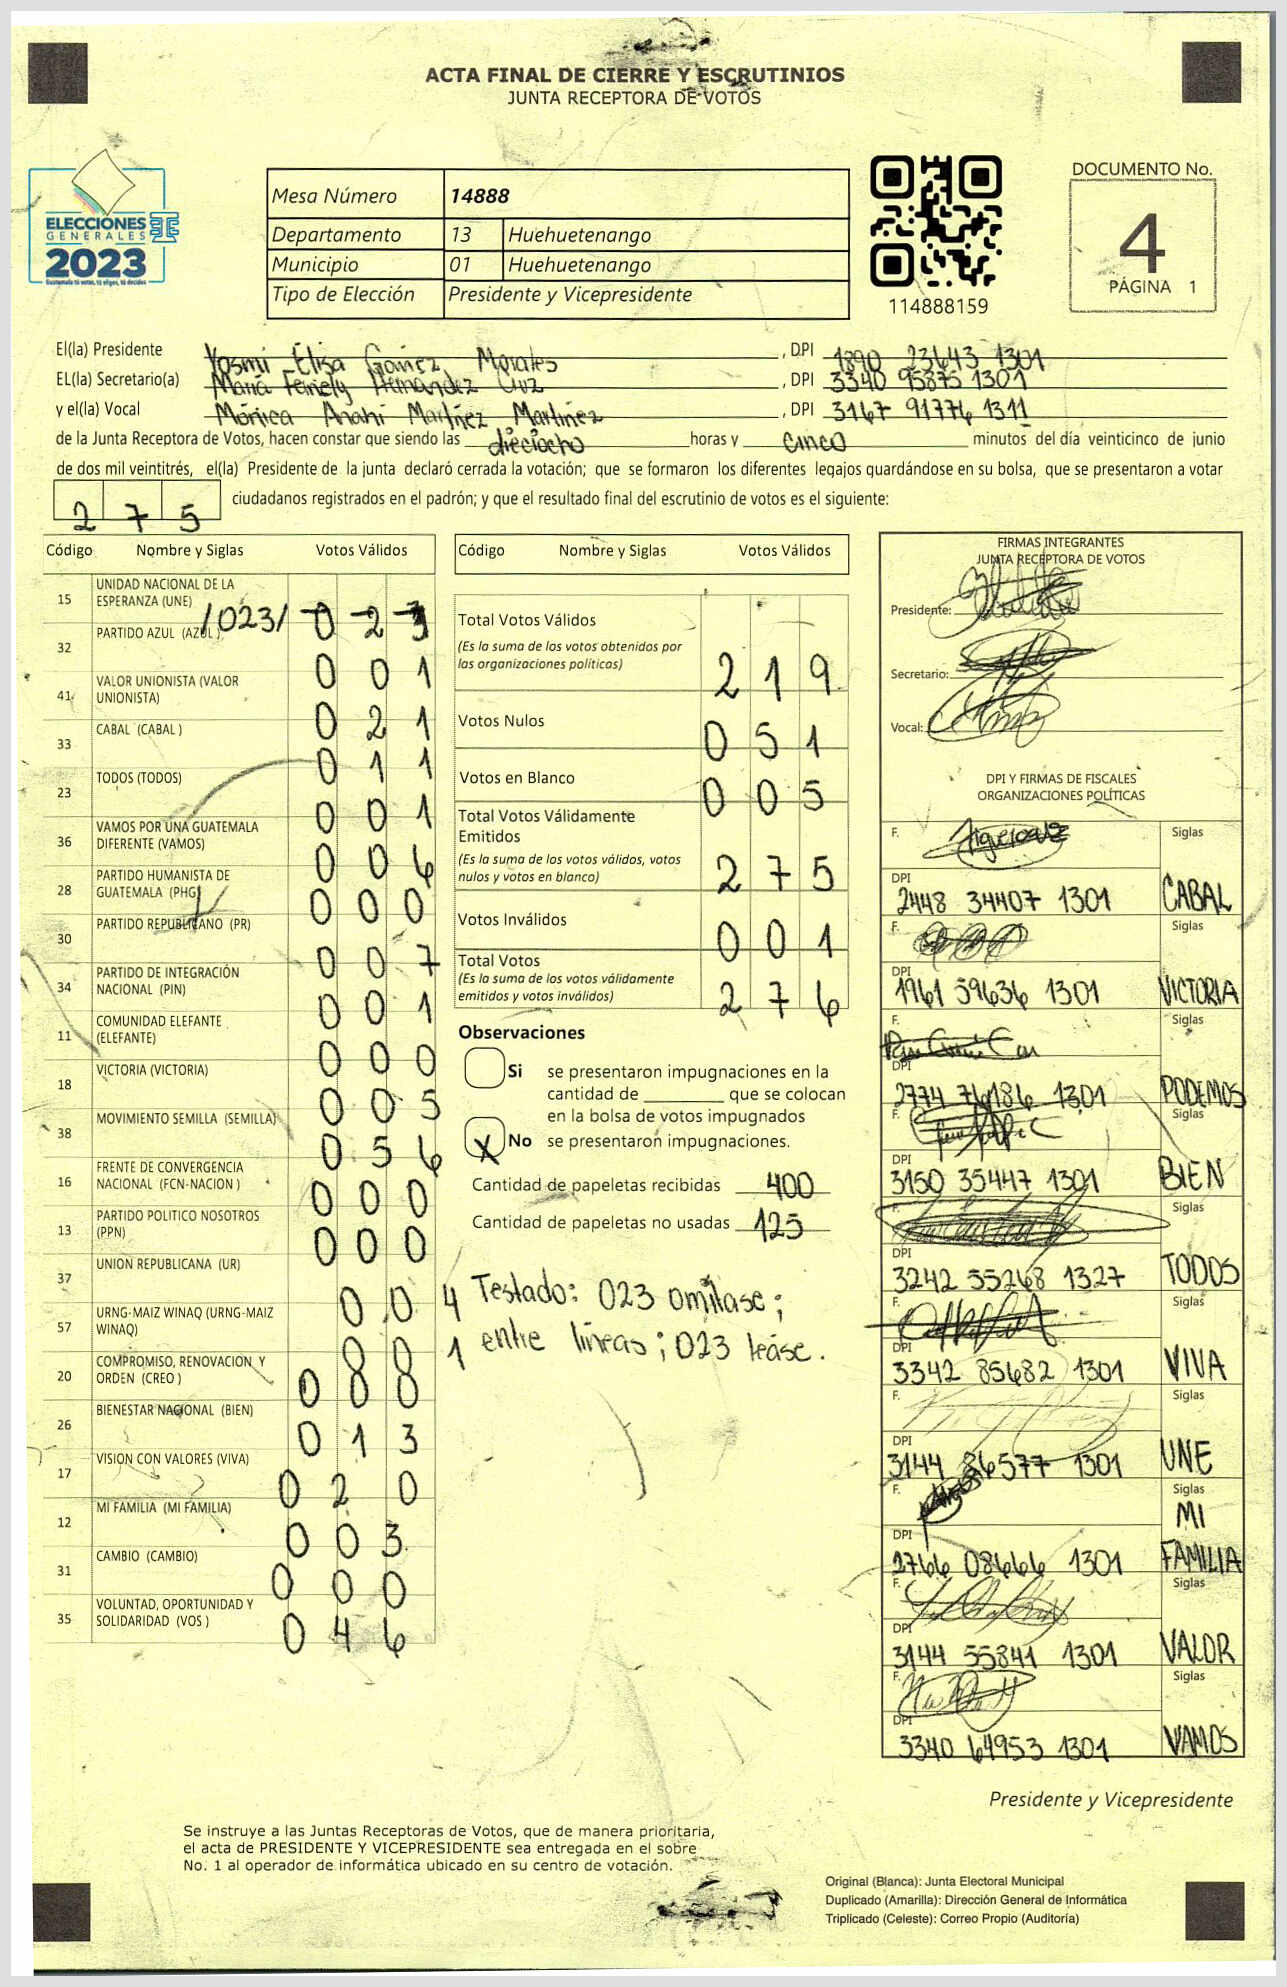 ACTA FINAL DE CIERRE Y ESCRUTINIOS
JUNTA RECEPTORA DE VOTOS
ELECCIONES
GENERALES
2023
Guatemala tú votas, tú eliges, tú decides
Mesa Número 14888
Departamento 13 Huehuetenango
Municipio 01 Huehuetenango
Tipo de Elección Presidente y Vicepresidente
114888159
DOCUMENTO No.
4
PÁGINA 1
El(la) Presidente Yosmi Elisa Gómez Morales , DPI 1890 23643 1301
EL(la) Secretario(a) María Hernández Cruz , DPI 3340 95875 1301
y el(la) Vocal Mónica Anahí Martínez Martínez , DPI 3167 91776 1311
de la Junta Receptora de Votos, hacen constar que siendo las dieciocho horas y cinco minutos del día veinticinco de junio
de dos mil veintitrés, el(la) Presidente de la junta declaró cerrada la votación; que se formaron los diferentes legajos guardándose en su bolsa, que se presentaron a votar
275 ciudadanos registrados en el padrón; y que el resultado final del escrutinio de votos es el siguiente:
Código Nombre y Siglas Votos Válidos
15 UNIDAD NACIONAL DE LA ESPERANZA (UNE) /023/ 0 2 3
32 PARTIDO AZUL (AZUL) 0 0 1
41 VALOR UNIONISTA (VALOR UNIONISTA) 0 2 1
33 CABAL (CABAL) 0 1 1
23 TODOS (TODOS) 0 0 1
36 VAMOS POR UNA GUATEMALA DIFERENTE (VAMOS) 0 0 6
28 PARTIDO HUMANISTA DE GUATEMALA (PHG) 0 0 0
30 PARTIDO REPUBLICANO (PR) 0 0 7
34 PARTIDO DE INTEGRACIÓN NACIONAL (PIN) 0 0 1
11 COMUNIDAD ELEFANTE (ELEFANTE) 0 0 0
18 VICTORIA (VICTORIA) 0 0 5
38 MOVIMIENTO SEMILLA (SEMILLA) 0 5 6
16 FRENTE DE CONVERGENCIA NACIONAL (FCN-NACION) 0 0 0
13 PARTIDO POLITICO NOSOTROS (PPN) 0 0 0
37 UNION REPUBLICANA (UR) 0 0 4
57 URNG-MAIZ WINAQ (URNG-MAIZ WINAQ) 0 0 1
20 COMPROMISO, RENOVACION Y ORDEN (CREO) 0 0 0
26 BIENESTAR NACIONAL (BIEN) 0 1 3
17 VISION CON VALORES (VIVA) 0 2 0
12 MI FAMILIA (MI FAMILIA) 0 0 3
31 CAMBIO (CAMBIO) 0 0 0
35 VOLUNTAD, OPORTUNIDAD Y SOLIDARIDAD (VOS) 0 4 6
Código Nombre y Siglas Votos Válidos
Total Votos Válidos
(Es la suma de los votos obtenidos por las organizaciones políticas) 2 1 9
Votos Nulos 0 5 1
Votos en Blanco 0 0 5
Total Votos Válidamente Emitidos
(Es la suma de los votos válidos, votos nulos y votos en blanco) 2 7 5
Votos Inválidos 0 0 1
Total Votos
(Es la suma de los votos válidamente emitidos y votos inválidos) 2 7 6
Observaciones
Si se presentaron impugnaciones en la
cantidad de ________ que se colocan
en la bolsa de votos impugnados
X No se presentaron impugnaciones.
Cantidad de papeletas recibidas 400
Cantidad de papeletas no usadas 125
Testado: 023 omítase;
entre líneas; 023 léase.
FIRMAS INTEGRANTES
JUNTA RECEPTORA DE VOTOS
Presidente:
Secretario:
Vocal:
DPI Y FIRMAS DE FISCALES
ORGANIZACIONES POLÍTICAS
F. Siglas
DPI 2448 34407 1301 CABAL
F. Siglas
DPI 1961 59636 1301 VICTORIA
F. Siglas
DPI 2774 76186 1301 PODEMOS
F. Siglas
DPI 3150 35447 1301 BIEN
F. Siglas
DPI 3242 55268 1327 TODOS
F. Siglas
DPI 3342 85682 1301 VIVA
F. Siglas
DPI 3144 86577 1301 UNE
F. Siglas
DPI 2766 08666 1301 MI FAMILIA
F. Siglas
DPI 3144 55841 1301 VALOR
F. Siglas
DPI 3340 64953 1301 VAMOS
Presidente y Vicepresidente
Se instruye a las Juntas Receptoras de Votos, que de manera prioritaria,
el acta de PRESIDENTE Y VICEPRESIDENTE sea entregada en el sobre
No. 1 al operador de informática ubicado en su centro de votación.
Original (Blanca): Junta Electoral Municipal
Duplicado (Amarilla): Dirección General de Informática
Triplicado (Celeste): Correo Propio (Auditoría)